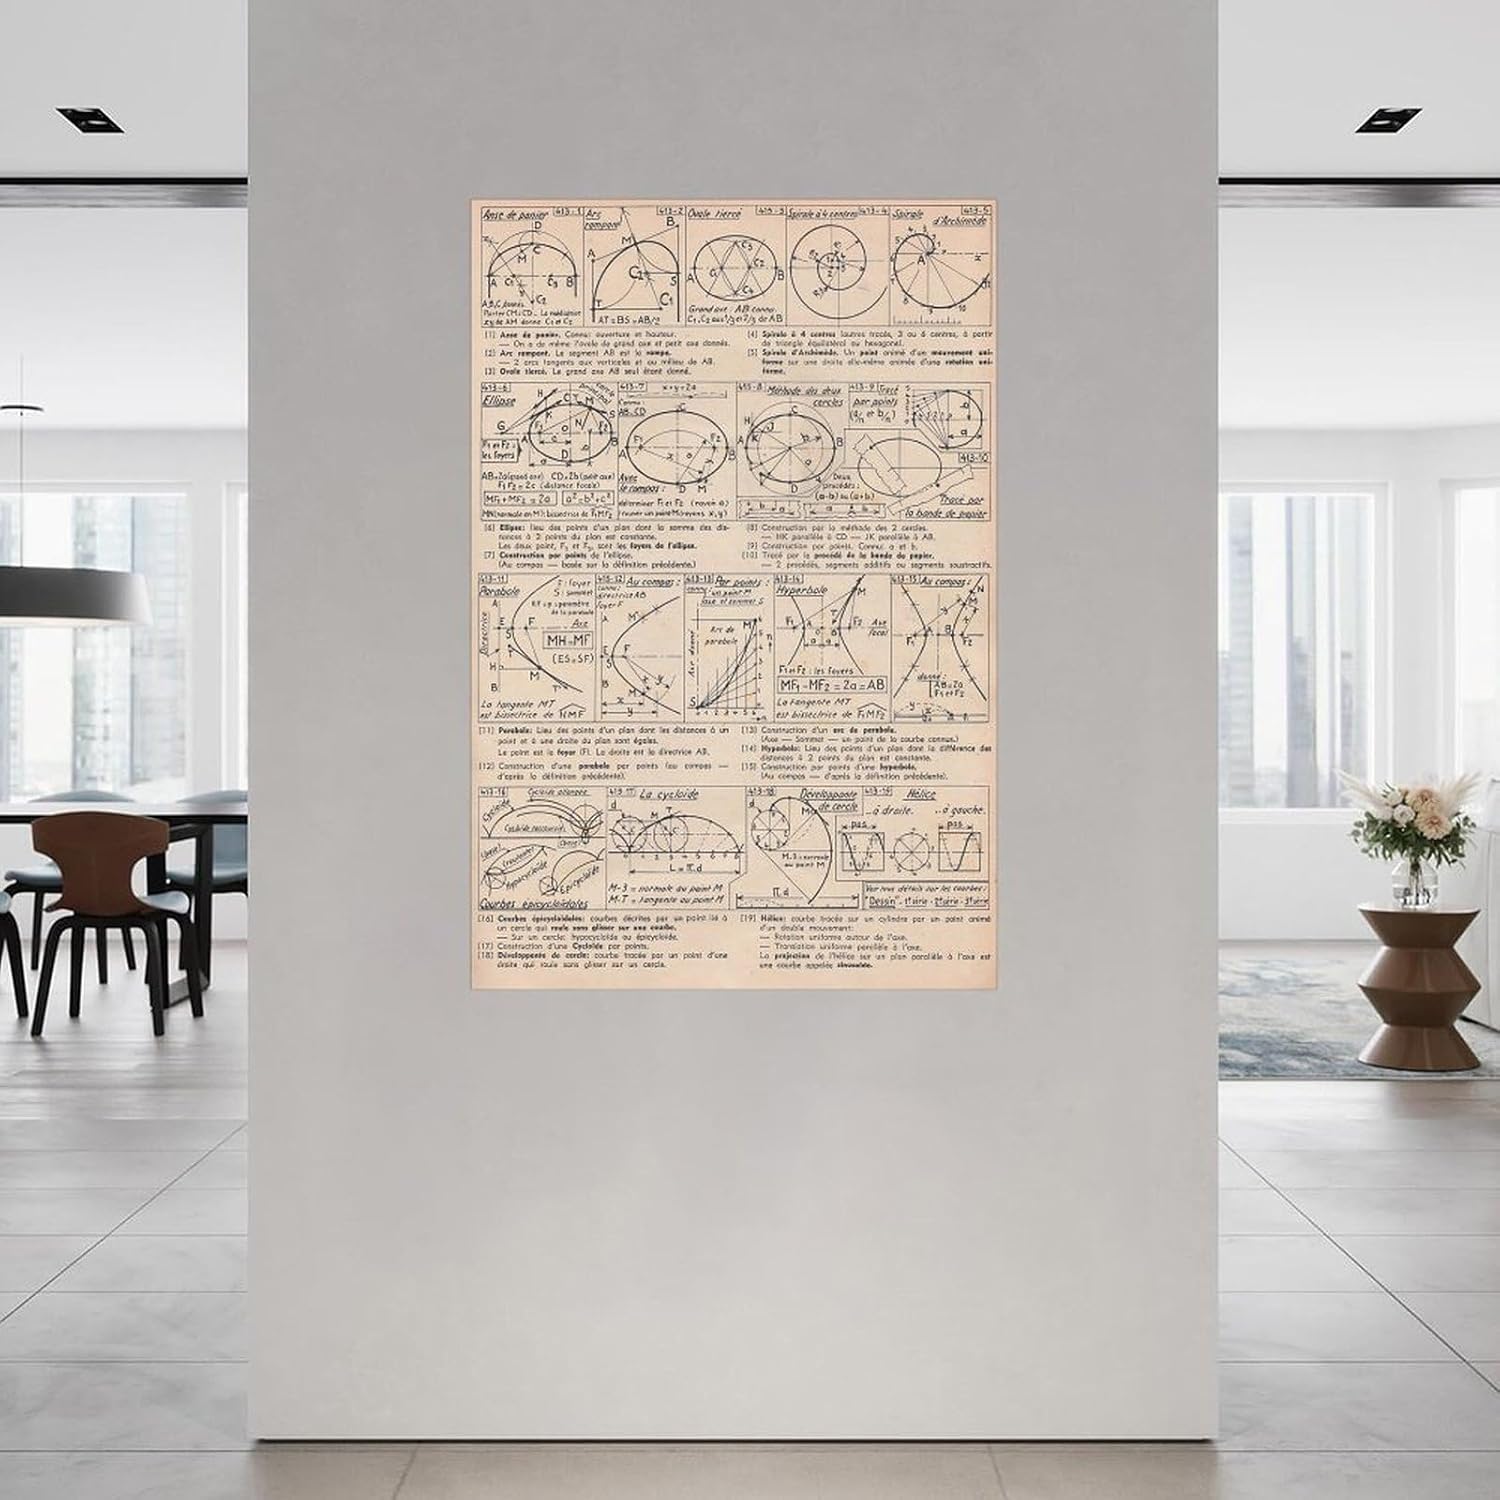 Anse de panier 413-1
Arc rampant 413-2
Ovale tiercé 413-3
Spirale à 4 centres 413-4
Spirale d'Archimède 413-5
A,B,C, donnés.
Porter CM=CD_ La médiatrice
xy de AM donne C1 et C2
AT=BS=AB/2
Grand axe: AB connu.
C1, C2 aux 1/3 et 2/3 de AB
[1] Anse de panier. Connu: ouverture et hauteur.
— On a de même l'ovale de grand axe et petit axe donnés.
[2] Arc rampant. Le segment AB est la rampe.
— 2 arcs tangents aux verticales et au milieu de AB.
[3] Ovale tiercé. Le grand axe AB seul étant donné.
[4] Spirale à 4 centres (autres tracés, 3 ou 6 centres, à partir
de triangle équilatéral ou hexagone).
[5] Spirale d'Archimède. Un point animé d'un mouvement uni-
forme sur une droite elle-même animée d'une rotation uni-
forme.
413-6
Ellipse
F1 et F2 =
les foyers
AB=2a (grand axe) CD=2b (petit axe)
F1F2=2c (distance focale)
MF1+MF2=2a a²=b²+c²
MN (normale en M): bissectrice de F1MF2
413-7 x+y=2a
Connu:
AB_CD
Avec
le compas:
déterminer F1 et F2 (rayon a)
trouver un point M (rayons x,y)
413-8 Méthode des deux
cercles
413-9 Tracé
par points
(a/n et b/n)
Deux
procédés:
(a-b) ou (a+b)
413-10
Tracé par
la bande de papier
[6] Ellipse: lieu des points d'un plan dont la somme des dis-
tances à 2 points du plan est constante.
Les deux point, F1 et F2, sont les foyers de l'ellipse.
[7] Construction par points de l'ellipse.
(Au compas — basée sur la définition précédente.)
[8] Construction par la méthode des 2 cercles.
— HK parallèle à CD — JK parallèle à AB.
[9] Construction par points. Connu: a et b.
[10] Tracé par le procédé de la bande du papier.
— 2 procédés, segments additifs ou segments soustractifs.
413-11
Parabole
F: foyer
S: sommet
de la parabole
Axe
Directrice
MH=MF
(ES=SF)
La tangente MT
est bissectrice de HMF
413-12 Au compas:
connu:
directrice AB
foyer F
413-13 Par points:
connu: un point M
l'axe et sommet S
Axe donné
Arc de
parabole
413-14
Hyperbole
Axe
focal
F1 et F2: les foyers
MF1-MF2=2a=AB
La tangente MT
est bissectrice de F1MF2
413-15 Au compas:
donné:
AB=2a
F1 et F2
[11] Parabole: Lieu des points d'un plan dont les distances à un
point et à une droite du plan sont égales.
Le point est le foyer (F). La droite est la directrice AB.
[12] Construction d'une parabole par points (au compas —
d'après la définition précédente).
[13] Construction d'un arc de parabole.
(Axe — Sommet — un point de la courbe connus.)
[14] Hyperbole: Lieu des points d'un plan dont la différence des
distances à 2 points du plan est constante.
[15] Construction par points d'une hyperbole.
(Au compas — d'après la définition précédente).
413-16
Cycloïde allongée
Cycloïde
Cycloïde raccourcie
(base)
(roulante)
Hypocycloïde
(base)
Epicycloïde
Courbes épicycloïdales
413-17 La cycloïde
L=π.d
M-3 = normale au point M
M-T = tangente au point M
413-18 Développante
de cercle
M-3 = normale
au point M
π.d
413-19 Hélice
à droite. ..à gauche.
pas pas
Voir tous détails sur les courbes:
"Dessin"_1re série_2e série_3e série
[16] Courbes épicycloïdales: courbes décrites par un point lié à
un cercle qui roule sans glisser sur une courbe.
— Sur un cercle: hypocycloïde ou épicycloïde.
[17] Construction d'une Cycloïde par points.
[18] Développante de cercle: courbe tracée par un point d'une
droite qui roule sans glisser sur un cercle.
[19] Hélice: courbe tracée sur un cylindre par un point animé
d'un double mouvement:
— Rotation uniforme autour de l'axe.
— Translation uniforme parallèle à l'axe.
La projection de l'hélice sur un plan parallèle à l'axe est
une courbe appelée sinusoïde.